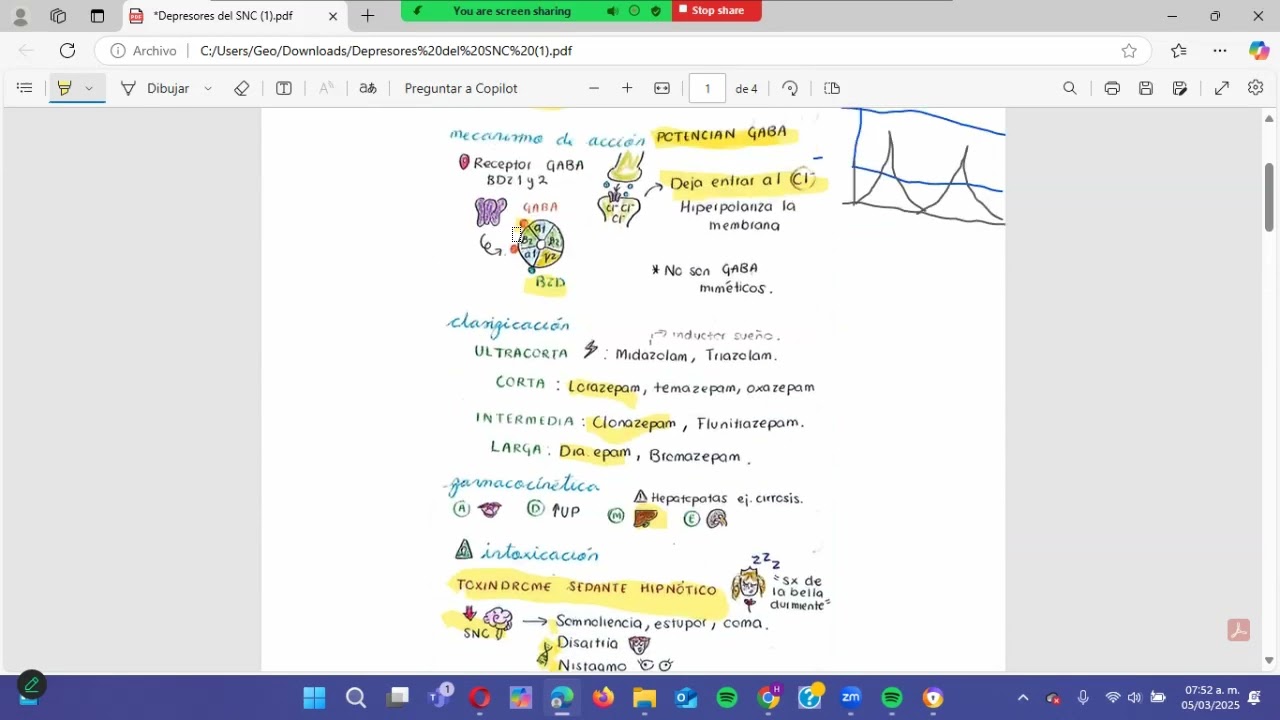 *Depresores del SNC (1).pdf
You are screen sharing
Stop share
Archivo
C:/Users/Geo/Downloads/Depresores%20del%20SNC%20(1).pdf
Dibujar
Preguntar a Copilot
1
de 4
mecanismo de acción
POTENCIAN GABA
Receptor GABA
BDZ 1 y 2
Deja entrar al Cl-
Hiperpolariza la
membrana
GABA
Cl- Cl-
Cl-
α1
β2
β2
α1
γ2
BZD
* No son GABA
miméticos.
clasificación
inductor sueño.
ULTRACORTA : Midazolam, Triazolam.
CORTA : Lorazepam, temazepam, oxazepam
INTERMEDIA : Clonazepam, Flunitrazepam.
LARGA : Dia epam, Bromazepam.
farmacocinética
Hepatopatas ej. cirrosis.
A
D
↑UP
M
E
intoxicación
TOXINDROME SEDANTE HIPNÓTICO
zzz
"sx de
la bella
durmiente"
SNC
→ Somnoliencia, estupor, coma.
Disartria
Nistagmo
1
zm
07:52 a. m.
05/03/2025